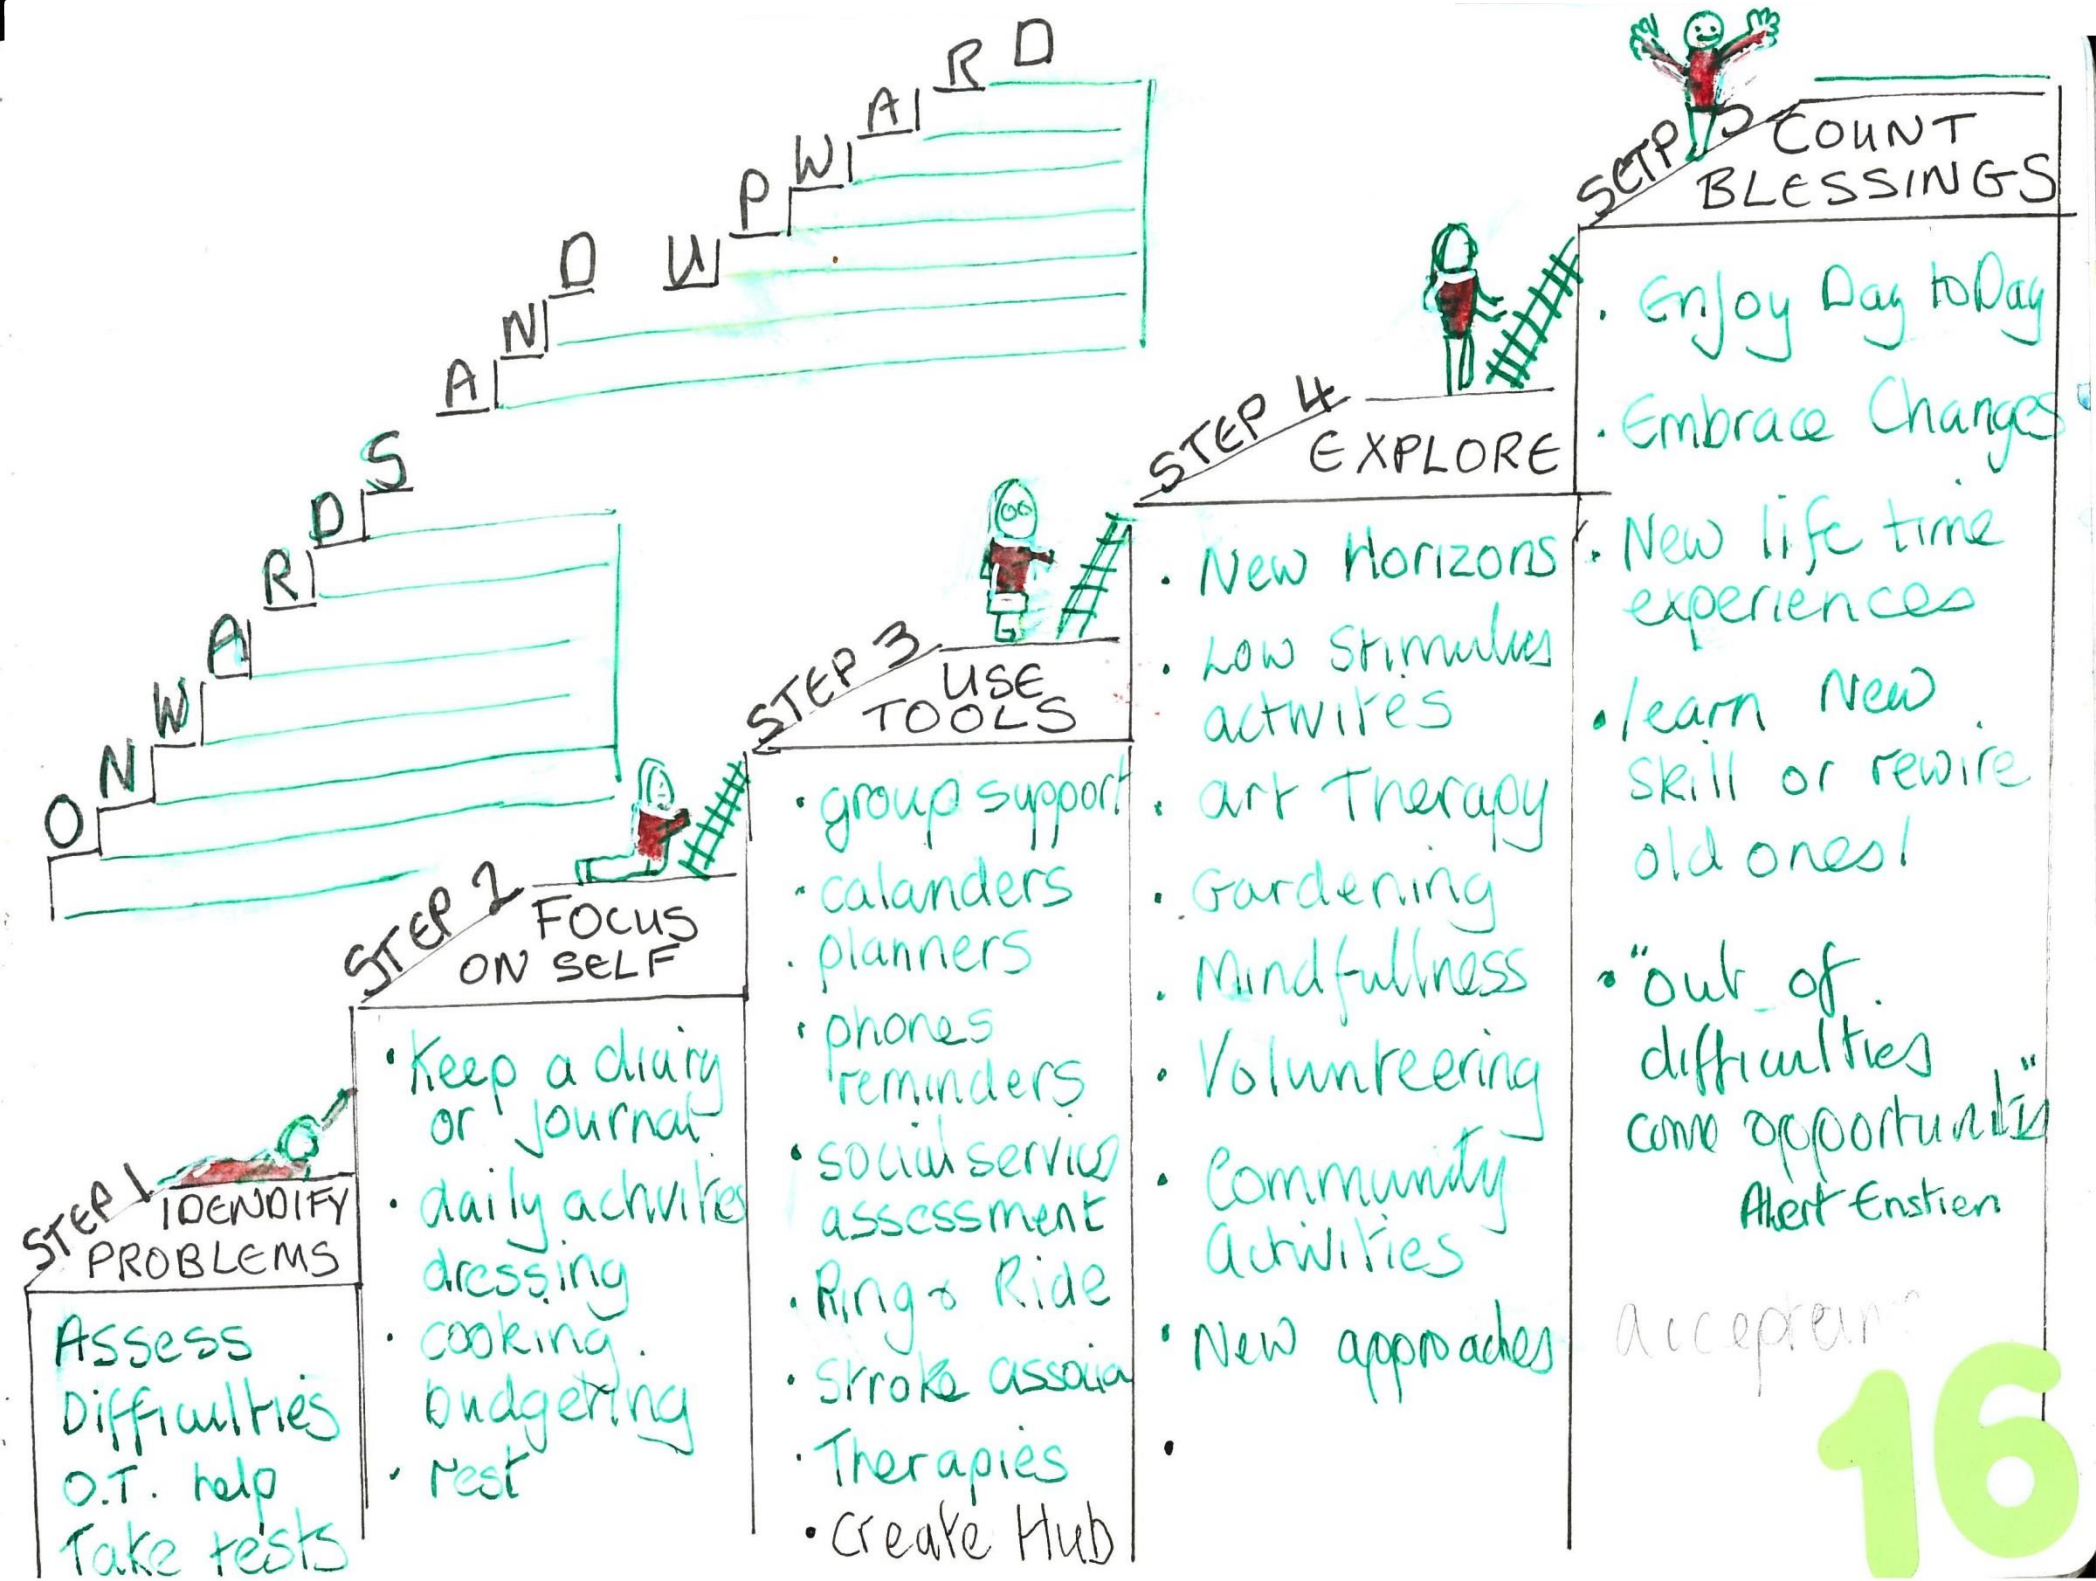 ONWARDS AND UPWARD
STEP 1
IDENDIFY
PROBLEMS
Assess
Difficulties
O.T. help
Take tests
STEP 2
FOCUS
ON SELF
• Keep a diary
or journal
• daily activities
dressing
• cooking.
budgeting
• rest
STEP 3
USE
TOOLS
• group support
• calanders
• planners
• phones
reminders
• social service
assessment
• Ring & Ride
• Stroke associa
• Therapies
• Create Hub
STEP 4
EXPLORE
• New Horizons
• Low Stimulus
activites
• art Therapy
• Gardening
• Mindfullness
• Volunteering
• Community
Activities
• New approaches
•
SETP 5
COUNT
BLESSINGS
• Enjoy Day to Day
• Embrace Changes
• New life time
experiences
• learn New
skill or rewire
old ones!
• "out of
difficulties
come opportunities"
Albert Enstien
16